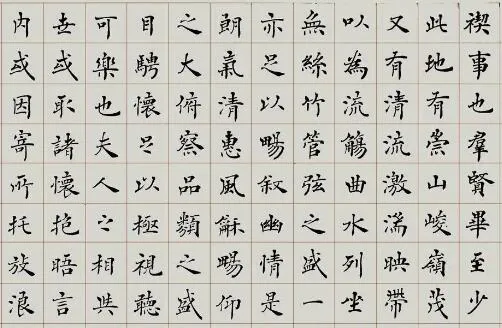 禊事也羣賢畢至少
此地有崇山峻嶺茂
又有清流激湍映帶
以為流觴曲水列坐
無絲竹管弦之盛一
亦足以暢叙幽情是
朗氣清惠風龢暢仰
之大俯察品類之盛
目騁懷足以極視聽
可樂也夫人之相與
世或取諸懷抱晤言
内或因寄所托放浪